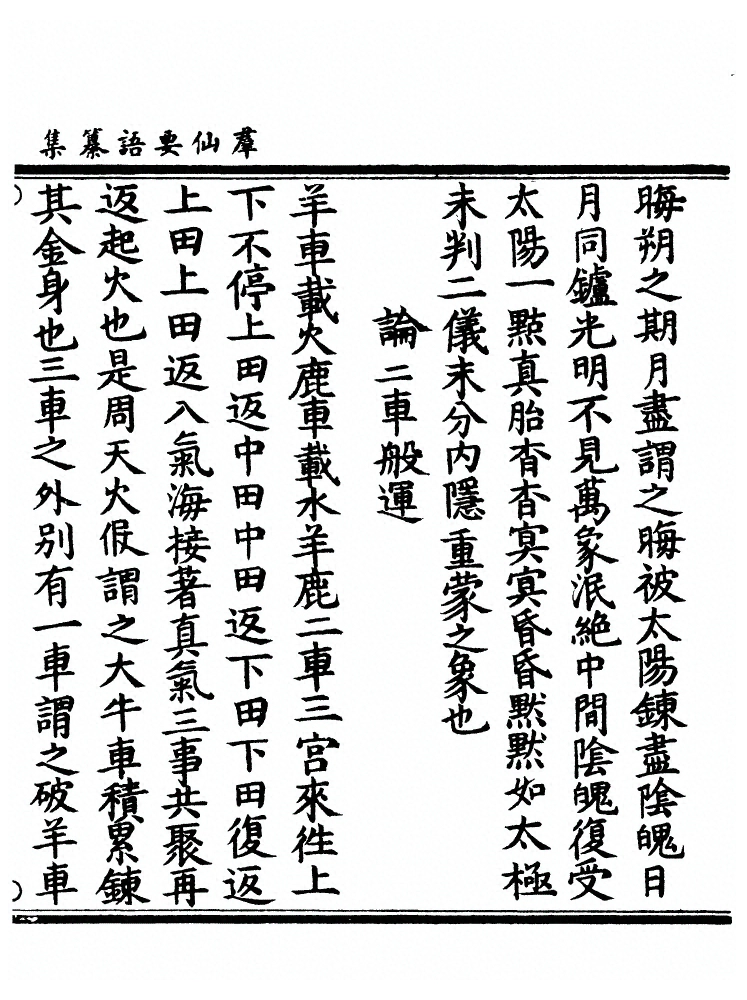 羣仙要語纂集
晦朔之期月盡謂之晦被太陽鍊盡陰魄日
月同鑪光明不見萬象泯絕中間陰魄復受
太陽一點真胎杳杳冥冥昏昏默默如太極
未判二儀未分內隱重蒙之象也
論二車般運
羊車載火鹿車載水羊鹿二車三宮來往上
下不停上田返中田中田返下田下田復返
上田上田返入氣海接著真氣三事共聚再
返起火也是周天火候謂之大牛車積累鍊
其金身也三車之外別有一車謂之破羊車